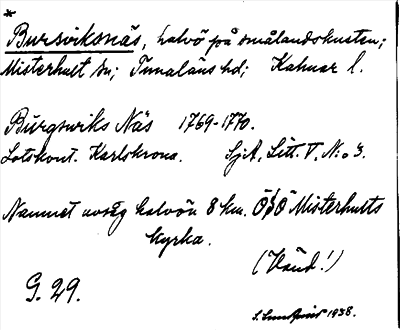 *
Bursviksnäs, halvö på smålandskusten;
Misterhult sn; Tunaläns hd; Kalmar l.
Burgswiks Näs 1769-1770.
Lotskont. Karlskrona. SjA, Litt. V, N:o 3.
Namnet avseg halvön 8 km. ÖSÖ Misterhults
kyrka.
(Vänd!)
G. 29.
1938.